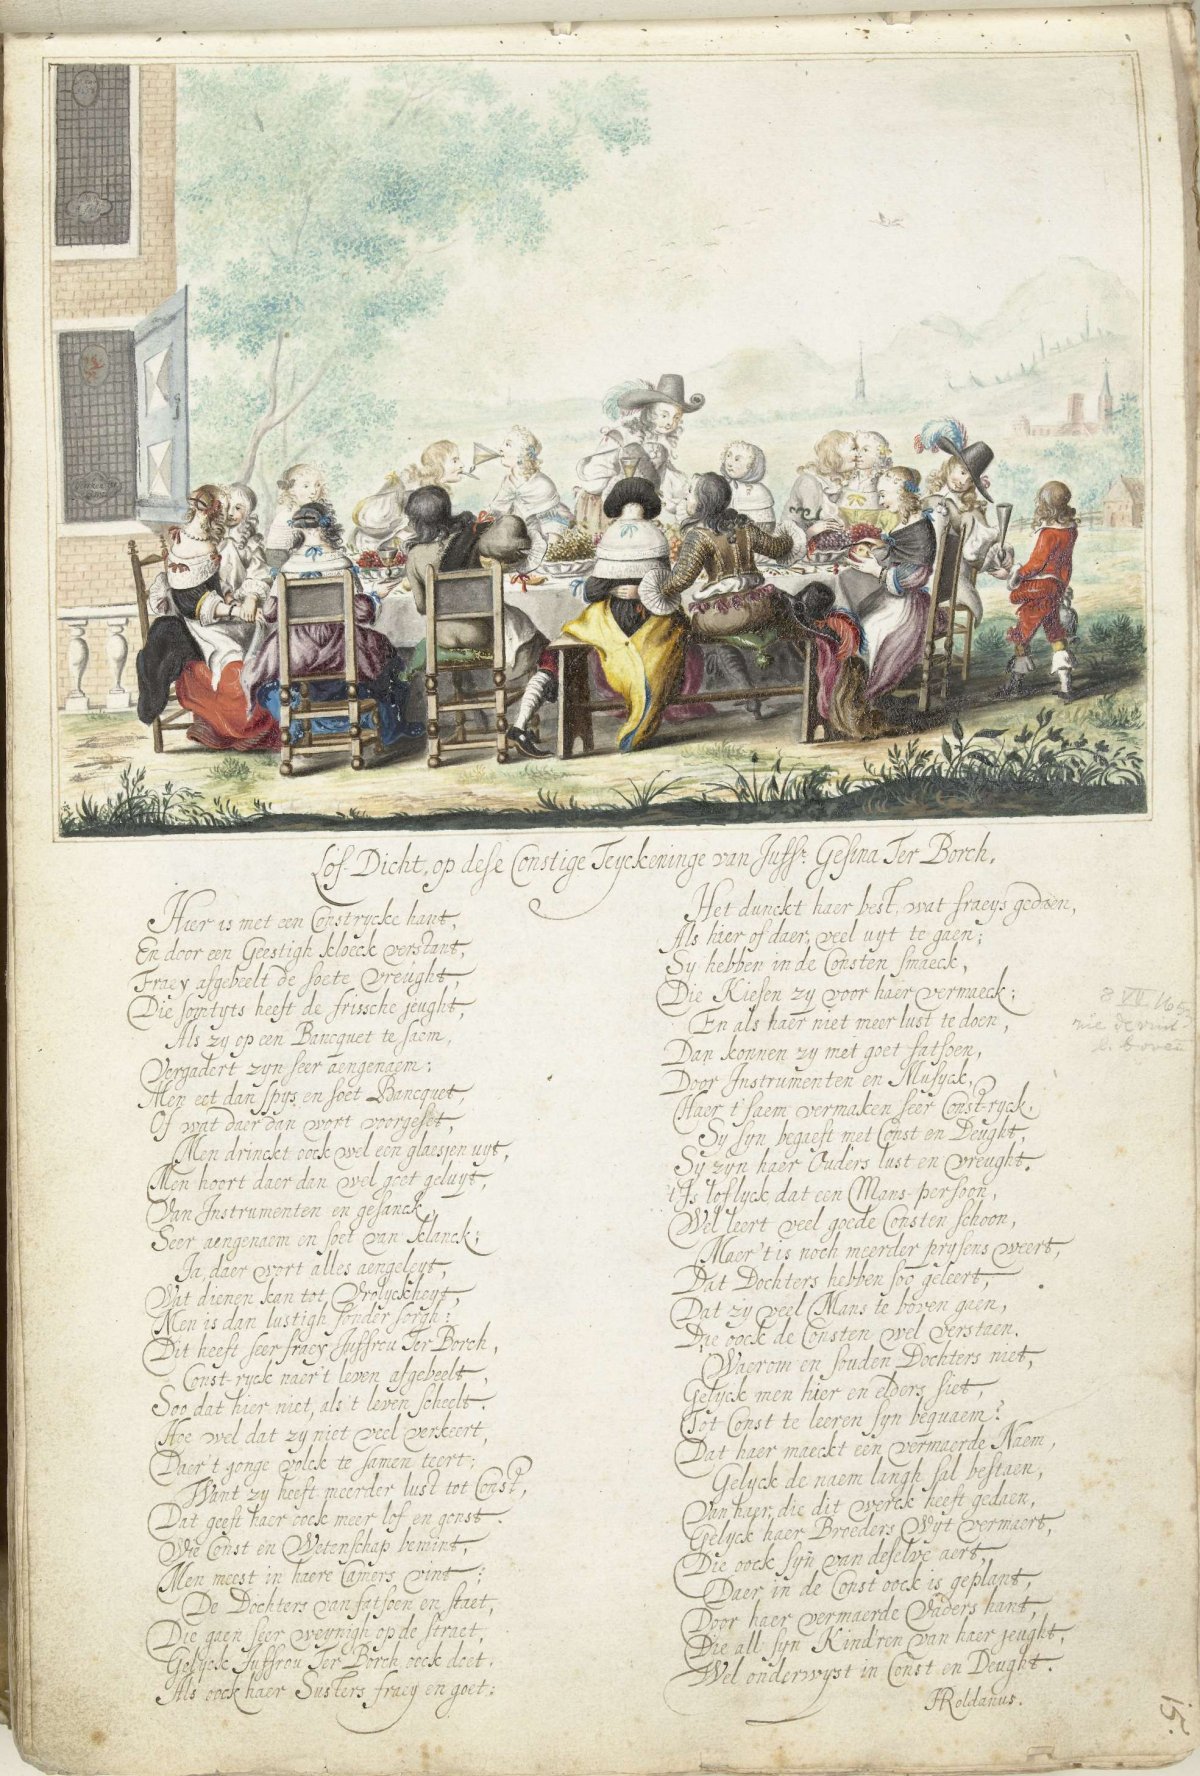 Lof-Dicht, op dese Constige Teyckeninge van Juffr. Gesina Ter Borch.
Hier is met een Constrycke hant,
En door een Geestigh kloeck verstant,
Fraey afgebeelt de soete vreught,
Die somtyts heeft de frissche jeught,
Als zy op een Bancquet te saem,
Vergadert zyn seer aengenaem;
Men eet dan spys en soet Bancquet,
Of wat daer dan wort voorgeset,
Men drinckt oock wel een glaesjen uyt,
Men hoort daer dan wel goet geluyt,
Van Instrumenten en gesanck,
Seer aengenaem en soet van klanck;
Ja, daer wort alles aengeleyt,
Wat dienen kan tot Vrolyckheyt,
Men is dan lustigh sonder sorgh:
Dit heeft seer fraey Juffrou Ter Borch,
Const-ryck naer 't leven afgebeelt,
Soo dat hier niet, als 't leven scheelt.
Hoe wel dat zy niet veel verkeert,
Daer 't jonge volck te samen teert;
Want zy heeft meerder lust tot Const,
Dat geeft haer oock meer lof en gonst.
Die Const en Wetenschap bemint,
Men meest in haere Camers vint;
De Dochters van fatsoen en staet,
Die gaen seer weynigh op de straet,
Gelyck Juffrou Ter Borch oock doet,
Als oock haer Susters fraey en goet:
Het dunckt haer best, wat fraeys gedaen,
Als hier of daer, veel uyt te gaen;
Sy hebben in de Consten smaeck,
Die Kiesen zy voor haer vermaeck;
En als haer niet meer lust te doen,
Dan konnen zy met goet fatsoen,
Door Instrumenten en Musyck,
Haer t'saem vermaken seer Const-ryck.
Sy syn begaeft met Const en Deught,
Sy zyn haer Ouders lust en vreught.
't Is loflyck dat een Mans-persoon,
Wel leert veel goede Consten schoon,
Maer 't is noch meerder prysens weert,
Dat Dochters hebben soo geleert,
Dat zy veel Mans te boven gaen,
Die oock de Consten wel verstaen.
Waerom en souden Dochters niet,
Gelyck men hier en elders siet,
Tot Const te leeren syn bequaem?
Dat haer maeckt een vermaerde Naem,
Gelyck de naem langh sal bestaen,
Van haer, die dit werck heeft gedaen,
Gelyck haer Broeders Wyt vermaert,
Die oock syn van deselve aert,
Daer in de Const oock is geplant,
Door haer vermaerde Vaders hant,
Die all syn Kind'ren van haer jeught,
Wel onderwyst in Const en Deught.
HRoldanus.
15.